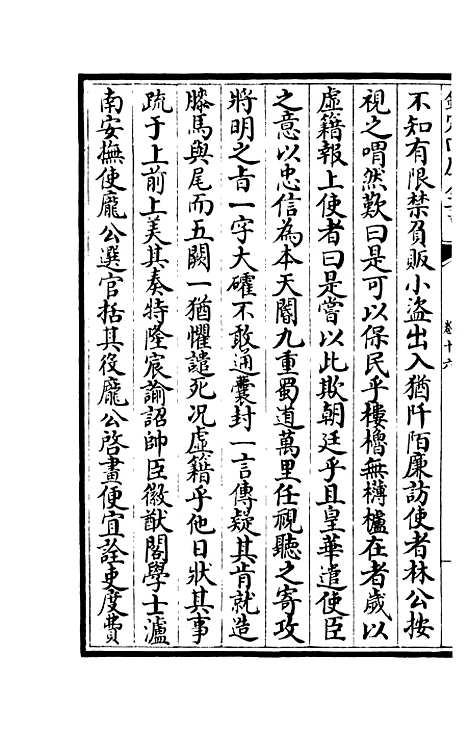 不知有限禁負販小盜出入猶阡陌廉訪使者林公按
視之喟然歎曰是可以保民乎樓櫓無欂櫨在者歲以
虛籍報上使者曰是嘗以此欺朝廷乎且皇華遣使臣
之意以忠信為本天閽九重蜀道萬里任視聽之寄攻
將明之㫖一字大礭不敢通囊封一言傳疑其肯就造
滕馬與尾而五闕一猶懼譴死况虛籍乎他日狀其事
疏于上前上美其奏特隆宸諭詔帥臣徽猷閣學士瀘
南安撫使龐公選官括其役龐公啓畫便宜詮吏度費
卷十六